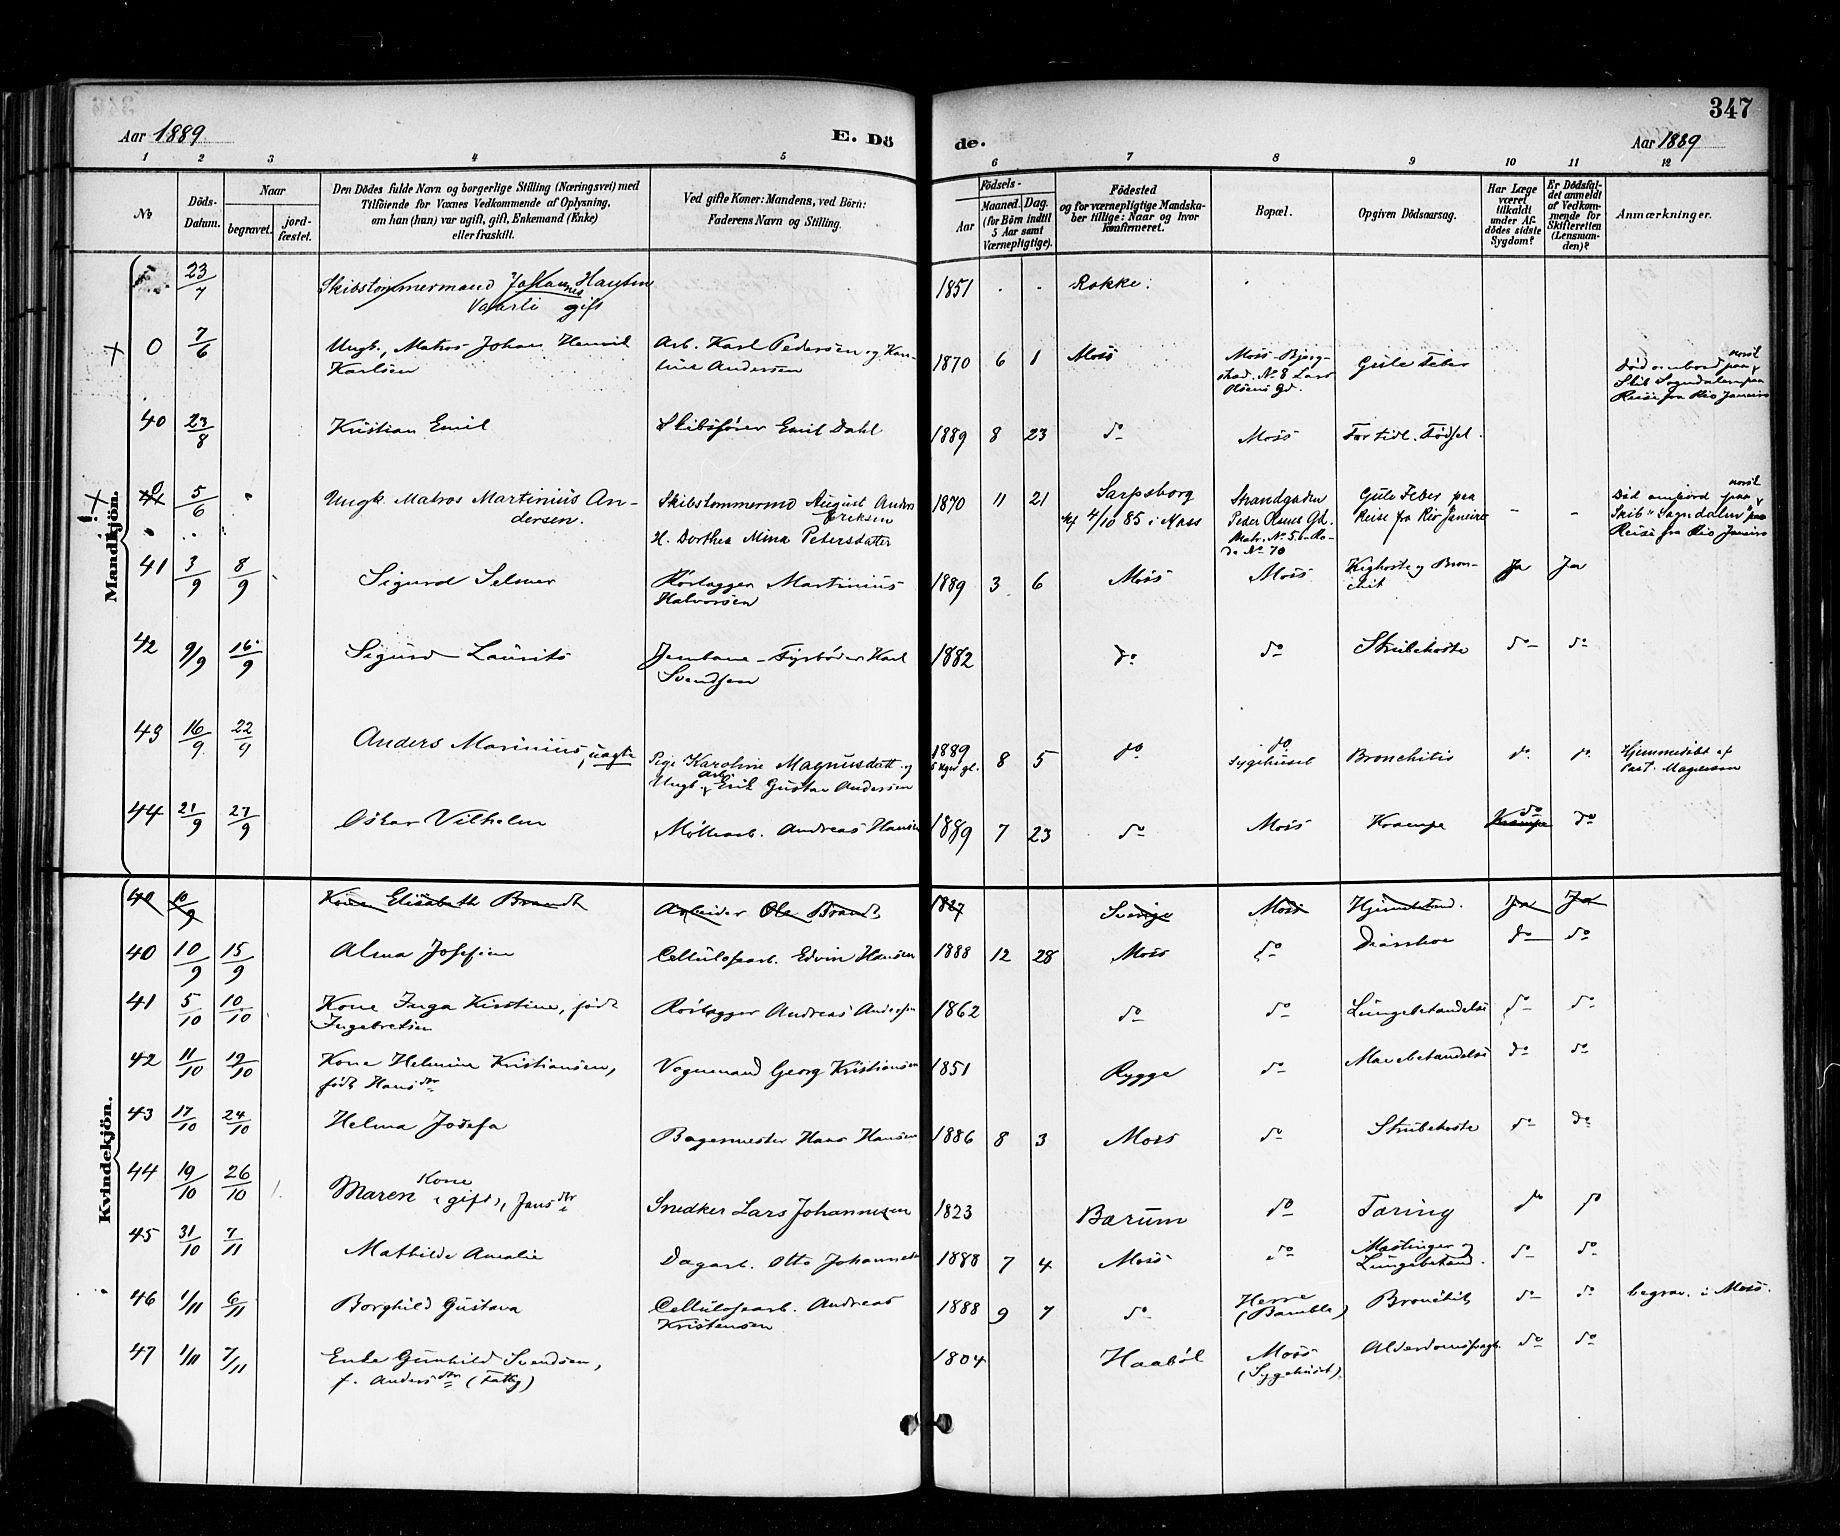 347
Aar 1889
E. Dö
de.
Aar 1889
1 2 3 4 5 6 7 8 9 10 11 12
No
Döds-
Datum.
Naar
begravet.
jord-
fæstet.
Den Dödes fulde Navn og borgerlige Stilling (Næringsvei) med
Tilföiende for Voxnes Vedkommende af Oplysning,
om han (hun) var ugift, gift, Enkemand (Enke)
eller fraskilt.
Ved gifte Koner: Mandens, ved Börn:
Faderens Navn og Stilling.
Födsels-
Aar
Maaned.
Dag.
(for Börn indtil
5 Aar samt
Værnepligtige).
Födested
og for værnepligtige Mandska-
ber tillige: Naar og hvor
konfirmeret.
Bopæl.
Opgiven Dödsaarsag.
Har Læge
været
tilkaldt
under Af-
dödes sidste
Sygdom?
Er Dödsfal-
det anmeldt
af Vedkom-
mende for
Skifteretten
(Lensman-
den)?
Anmærkninger.
Mandkjön.
23/7 Skibstømmermand Johannes Hansen 1851 Rokke
Vaarli gift
0 7/6 Ungk. Matros Johan Henrik Arb. Karl Pedersen og Kar- 1870 6 1 Moss Moss-Bjerg- Gule Feber Død ombord paa norsk
Karlsen line Andersen stad. No 8 Lars Skib Sogndalen paa
Olsens Gd. Reise fra Rio Janeiro
40 23/8 Kristian Emil Skibsfører Emil Dahl 1889 8 23 do Moss For tidl. Fødsel.
0 5/6 Ungk. Matros Martinius An- Skibstømmermd August Anders 1870 11 21 Sarpsborg Strandgaden Gule Feber paa - - Død ombord paa norsk
dersen. Eriksen kf 4/10 85 i Moss Peder Olsens Gd. Reise fra Rio Janeiro Skib "Sogndalen" paa
H. Dorthea Mina Petersdatter Matr. No 5 Ro- Reise fra Rio Janeiro
de No 70
41 3/9 8/9 Sigurd Selmer Rørlægger Martinius 1889 3 6 Moss Moss Kighoste og Bron- Ja Ja
Halvorsen chit
42 9/9 16/9 Sigurd Laurits Jernbane-Fyrbøder Karl 1882 do do Strubehoste do do
Svendsen
43 16/9 22/9 Anders Marinius, uægte Pige Karoline Magnusdatt. og 1889 8 5 do do Bronchitis do do Hjemmedøbt af
Ungk. Arb. Erik Gustav Andersen Sygehuset Past. Magelssen
44 21/9 27/9 Oskar Vilhelm Møllearb. Andreas Hansen 1889 7 23 do Moss Krampe Krampe do do
Kvindekjön.
40 10/9 Kone Elisabeth Brandt Arbeider Ole Brandt 1827 Sverige Moss Hjernebetænd. Ja Ja
40 10/9 15/9 Alma Josefine Cellulosearb. Edvin Hansen 1888 12 28 Moss do Diarrhoe do do
41 5/10 10/10 Kone Inga Kirstine, født Rørlægger Andreas Andersen 1862 do do Lungebetændelse do do
Ingebretsen
42 11/10 19/10 Kone Helmine Kristiansen, Vognmand Georg Kristiansen 1851 Rygge do Mavebetændelse do do
født Hansdr
43 17/10 24/10 Helma Josefa Bagermester Hans Hansen 1886 8 3 Moss do Strubehoste do do
44 19/10 26/10 Maren Kone (gift), Jansdtr Snedker Lars Johannesen 1823 Barum do Tæring do do
45 31/10 7/11 Mathilde Amalie Dagarb. Otto Johannesen 1888 7 4 Moss do Mæslinger og do do
Lungebetænd.
46 1/11 6/11 Borghild Gustava Cellulosearb. Andreas 1888 9 7 do Herre Bronchit do do begrav. i Moss.
Kristensen (Bamble)
47 1/11 7/11 Enke Gunhild Svendsen, 1804 Haabøl Moss Alderdomssvagh. do do
f. Andersdtr (Fattig) (Sygehuset)